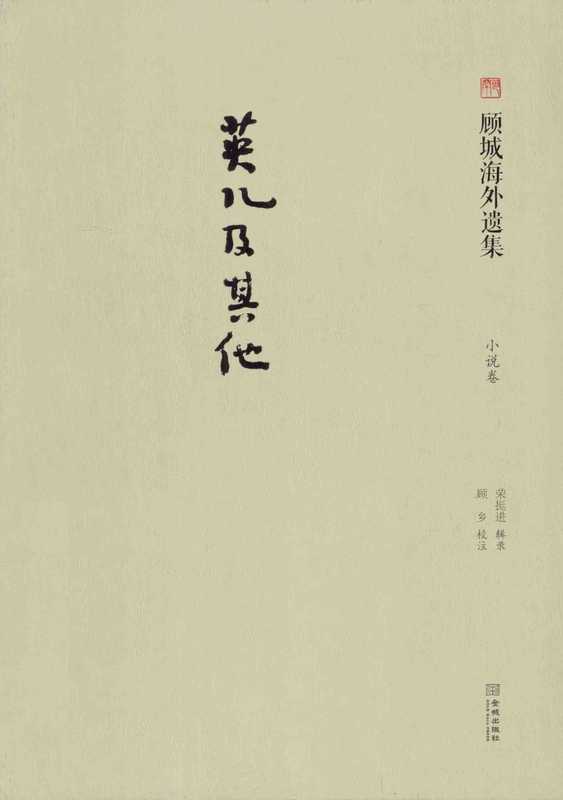 顾城海外遗集
小说卷
荣挺进 辑录
顾乡 校注
英儿及其他
金城出版社
GOLD WALL PRESS